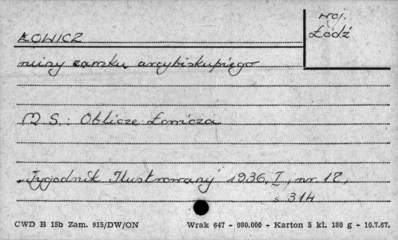 woj.
Łódź
ŁOWICZ
ruiny zamku arcybiskupiego
M S.: Oblicze Łowicza
„Tygodnik Ilustrowany" 1936, I, nr 12,
s 314
CWD B 15b Zam. 915/DW/ON Wrak 647 - 980.000 - Karton 5 kl. 180 g - 10.7.67.